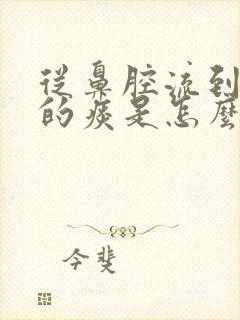 從鼻腔流到
的痰是怎麼
今斐